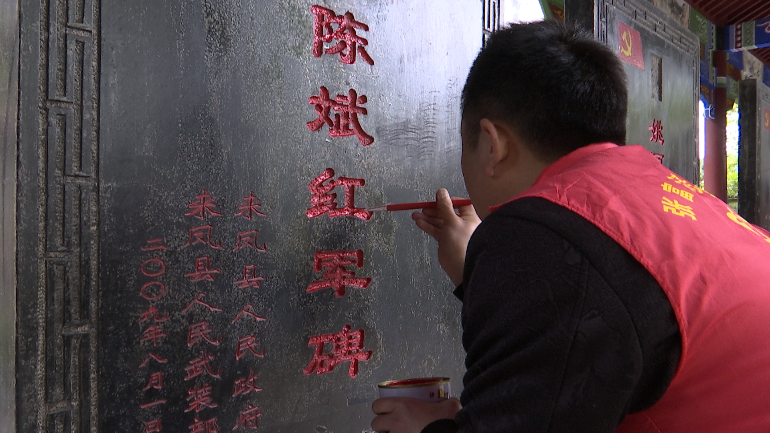 陈斌红军碑
来凤县人民政府
来凤县人民武装部
二〇〇九年八月一日
姚
张